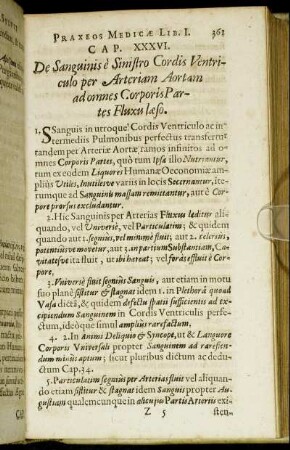 PRAXEOS MEDICÆ LIB. I. 361
CAP. XXXVI.
De Sanguinis è Sinistro Cordis Ventri-
culo per Arteriam Aortam
ad omnes Corporis Par-
tes Fluxu læso.
1. SSanguis in utroque Cordis Ventriculo ac in-
termediis Pulmonibus perfectus transferri
tandem per Arteriæ Aortæ, ramos infinitos ad o-
mnes Corporis Partes, quò tum ipsa illo Nutriantur,
tum ex eodem Liquores Humanæ Oeconomiæ am-
plius Utiles, Inutilesve variis in locis Secernantur, ite-
rumque ad Sanguinis massam remittantur, aut è Cor-
pore prorsus excludantur.
2. Hic Sanguinis per Arterias Fluxus læditur ali-
quando, vel Universè, vel Particulatim; & quidem
quando aut 1. segniùs, vel minimè fluit; aut 2. celeriùs,
potentiùsve movetur, aut 3. in partium Substantiam, Ca-
vitatésve ita fluit, ut ibi hæreat; vel foràs effluit è Cor-
pore.
3. Universè fluit segniùs Sanguis, aut etiam in motu
suo planè sistitur & stagnat idem 1. in Plethorâ quoad
Vasa dictâ, & quidem defectu spatii sufficientis ad ex-
cipiendum Sanguinem in Cordis Ventriculis perfec-
ctum, ideòque simul ampliùs rarefactum,
4. 2. In Animi Deliquio & Syncope, ut & Languore
Corporis Universali propter Sanguinem ad rarefien-
dum minùs aptum; sicut pluribus dictum ac deduc-
ctum Cap. 34.
5. Particulatim segniùs per Arterias fluit vel aliquan-
do etiam sistitur & stagnat idem Sanguis propter An-
gustiam qualemcunque in alicujus Partis Arteriis exi-
Z 5 sten-